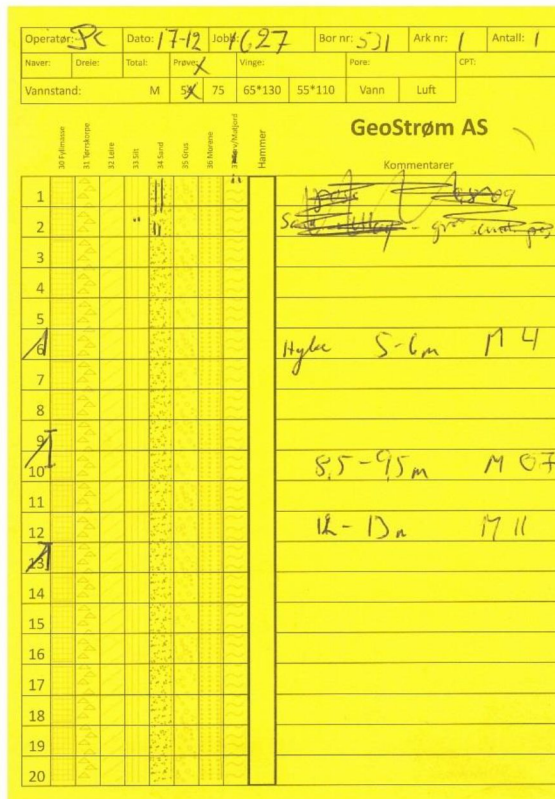 Operatør: Dato: 17-12 Jobb: 1627 Bor nr: 531 Ark nr: 1 Antall: 1
Naver: Dreie: Total: Prøve: X Vinge: Pore: CPT:
Vannstand: M 54 75 65*130 55*110 Vann Luft
GeoStrøm AS
30 Fyllmasse 31 Tørrskorpe 32 Leire 33 Silt 34 Sand 35 Grus 36 Morene Hammer
Kommentarer
1
2
3
4
5
6 Hylse 5-6m M 4
7
8
9
10 8,5-9,5m M 07
11
12 12-13m M 11
13
14
15
16
17
18
19
20